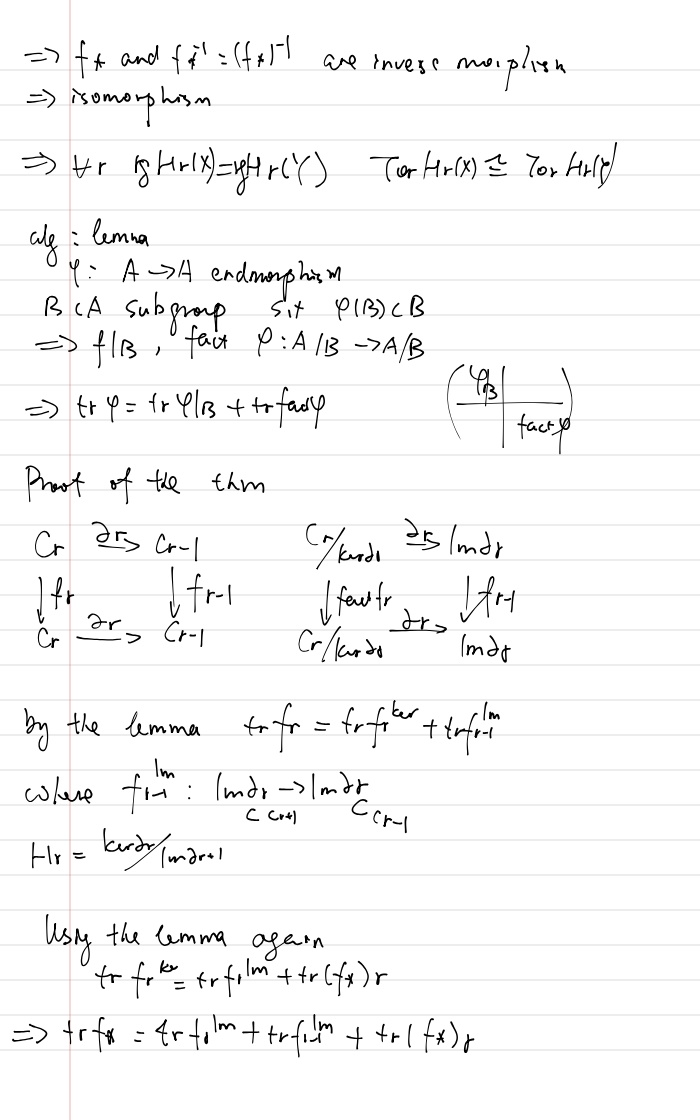 => f* and f*^-1 = (f*)^-1 are invese morphism
=> isomorphism
=> ∀r rg Hr(X) = rg Hr(Y) Tor Hr(X) ≅ Tor Hr(Y)
alg : lemma
φ : A -> A endmorphism
B ⊂ A subgroup s.t φ(B) ⊂ B
=> f|B , fact φ : A/B -> A/B
=> tr φ = tr φ|B + tr fact φ
φ|B
fact φ
Proof of the thm
Cr ∂r-> Cr-1 Cr/ker∂r ∂r-> Im∂r
↓fr ↓fr-1 ↓fact fr ↓fr-1
Cr ∂r-> Cr-1 Cr/ker∂r ∂r-> Im∂r
by the lemma tr fr = tr fr^ker + tr fr-1^Im
where fr-1^Im : Im∂r -> Im∂r
⊂ Cr+1 ⊂ Cr-1
Hr = ker∂r/Im∂r+1
Using the lemma again
tr fr^ker = tr fr^Im + tr(f*)r
=> tr f* = tr fr^Im + tr fr-1^Im + tr(f*)r